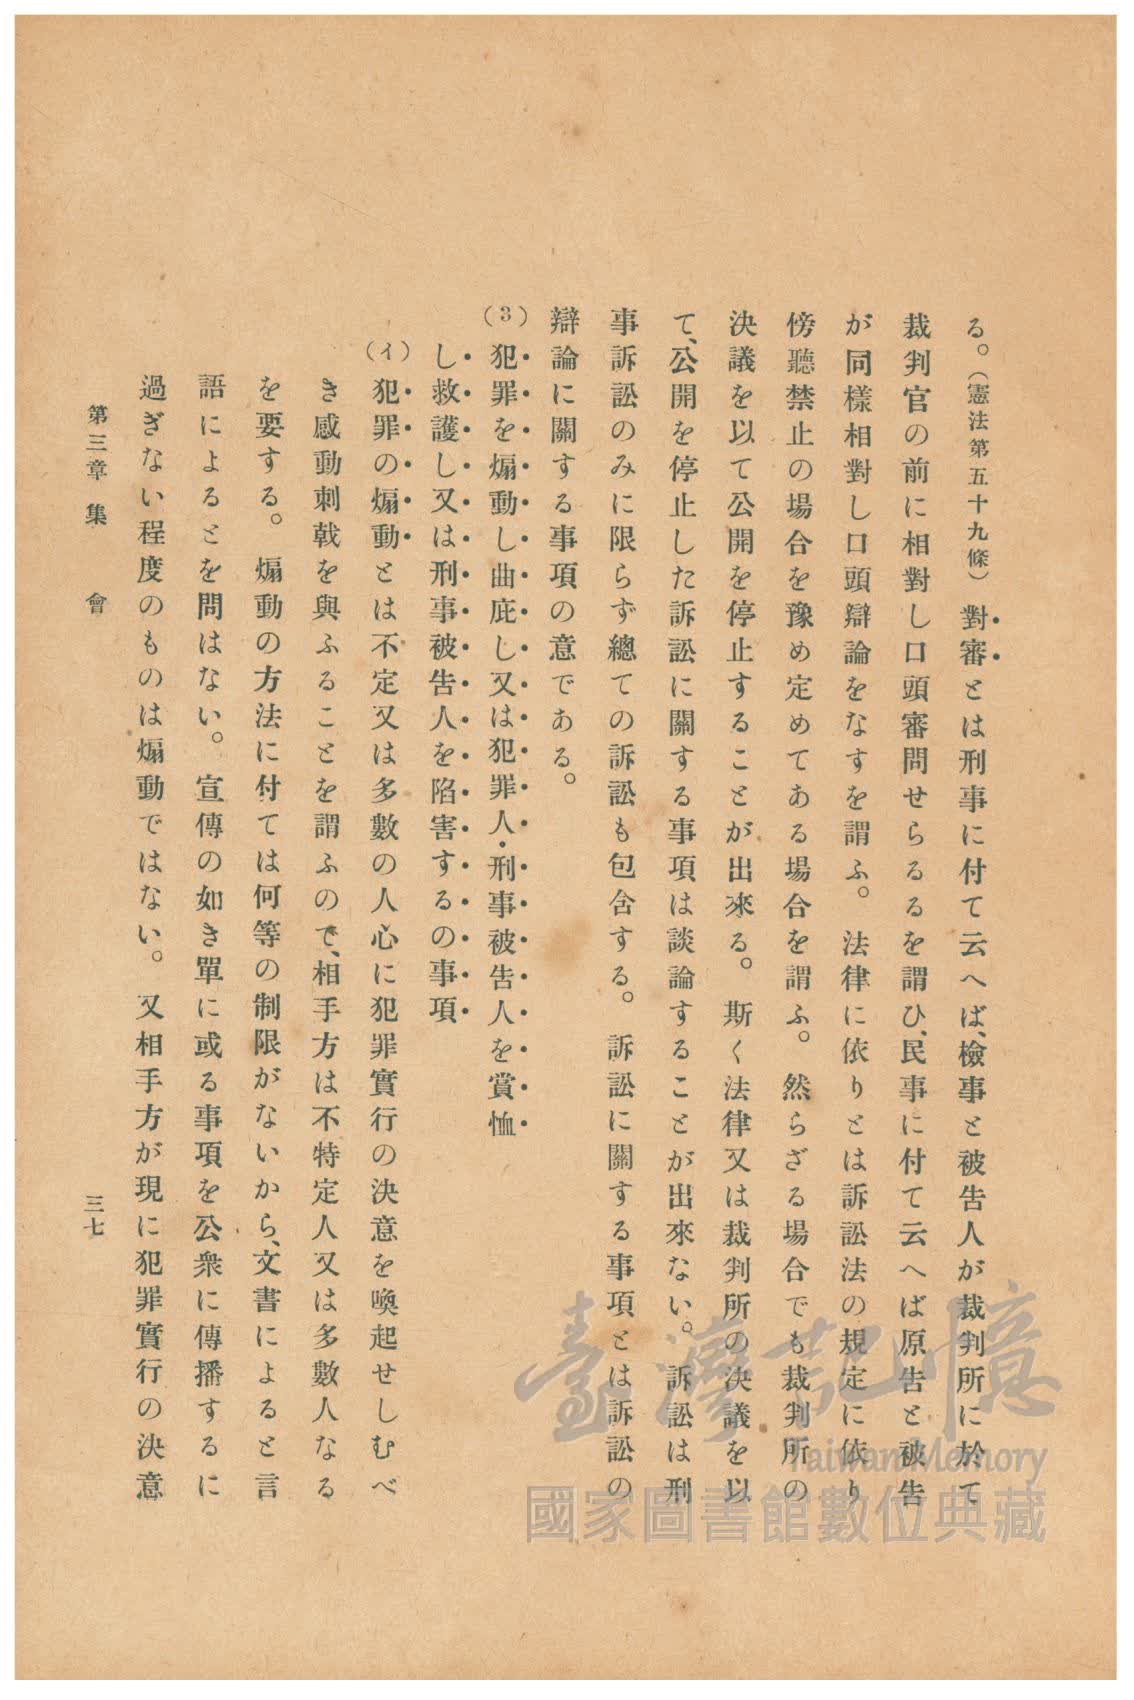 る。（憲法第五十九條）對審とは刑事に付て云へば、檢事と被告人が裁判所に於て
裁判官の前に相對し口頭審問せらるるを謂ひ、民事に付て云へば原告と被告
が同樣相對し口頭辯論をなすを謂ふ。法律に依りとは訴訟法の規定に依り
傍聽禁止の場合を豫め定めてある場合を謂ふ。然らざる場合でも裁判所の
決議を以て公開を停止することが出來る。斯く法律又は裁判所の決議を以
て、公開を停止した訴訟に關する事項は談論することが出來ない。訴訟は刑
事訴訟のみに限らず總ての訴訟も包含する。訴訟に關する事項とは訴訟の
辯論に關する事項の意である。
（3）犯罪を煽動し曲庇し又は犯罪人・刑事被告人を賞恤
し救護し又は刑事被告人を陷害するの事項
（イ）犯罪の煽動とは不定又は多數の人心に犯罪實行の決意を喚起せしむべ
き感動刺戟を與ふることを謂ふので、相手方は不特定人又は多數人なる
を要する。煽動の方法に付ては何等の制限がないから、文書によると言
語によるとを問はない。宣傳の如き單に或る事項を公衆に傳播するに
過ぎない程度のものは煽動ではない。又相手方が現に犯罪實行の決意
第三章 集 會
三七
臺灣記憶
Taiwan Memory
國家圖書館數位典藏